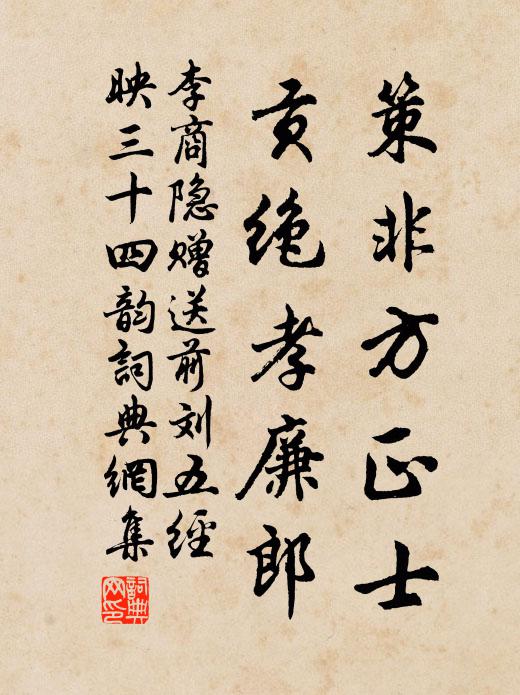 策非方正士
贡绝孝廉郎
李商隐赠送前刘五经
映三十四韵詞典網集
詞典
网印